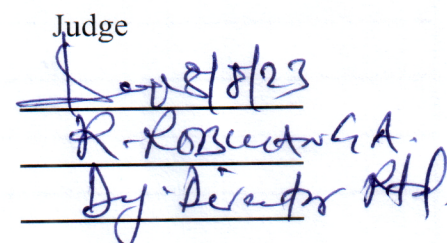 Judge
8/8/23
R. ROBUANGA.
Dy. Director